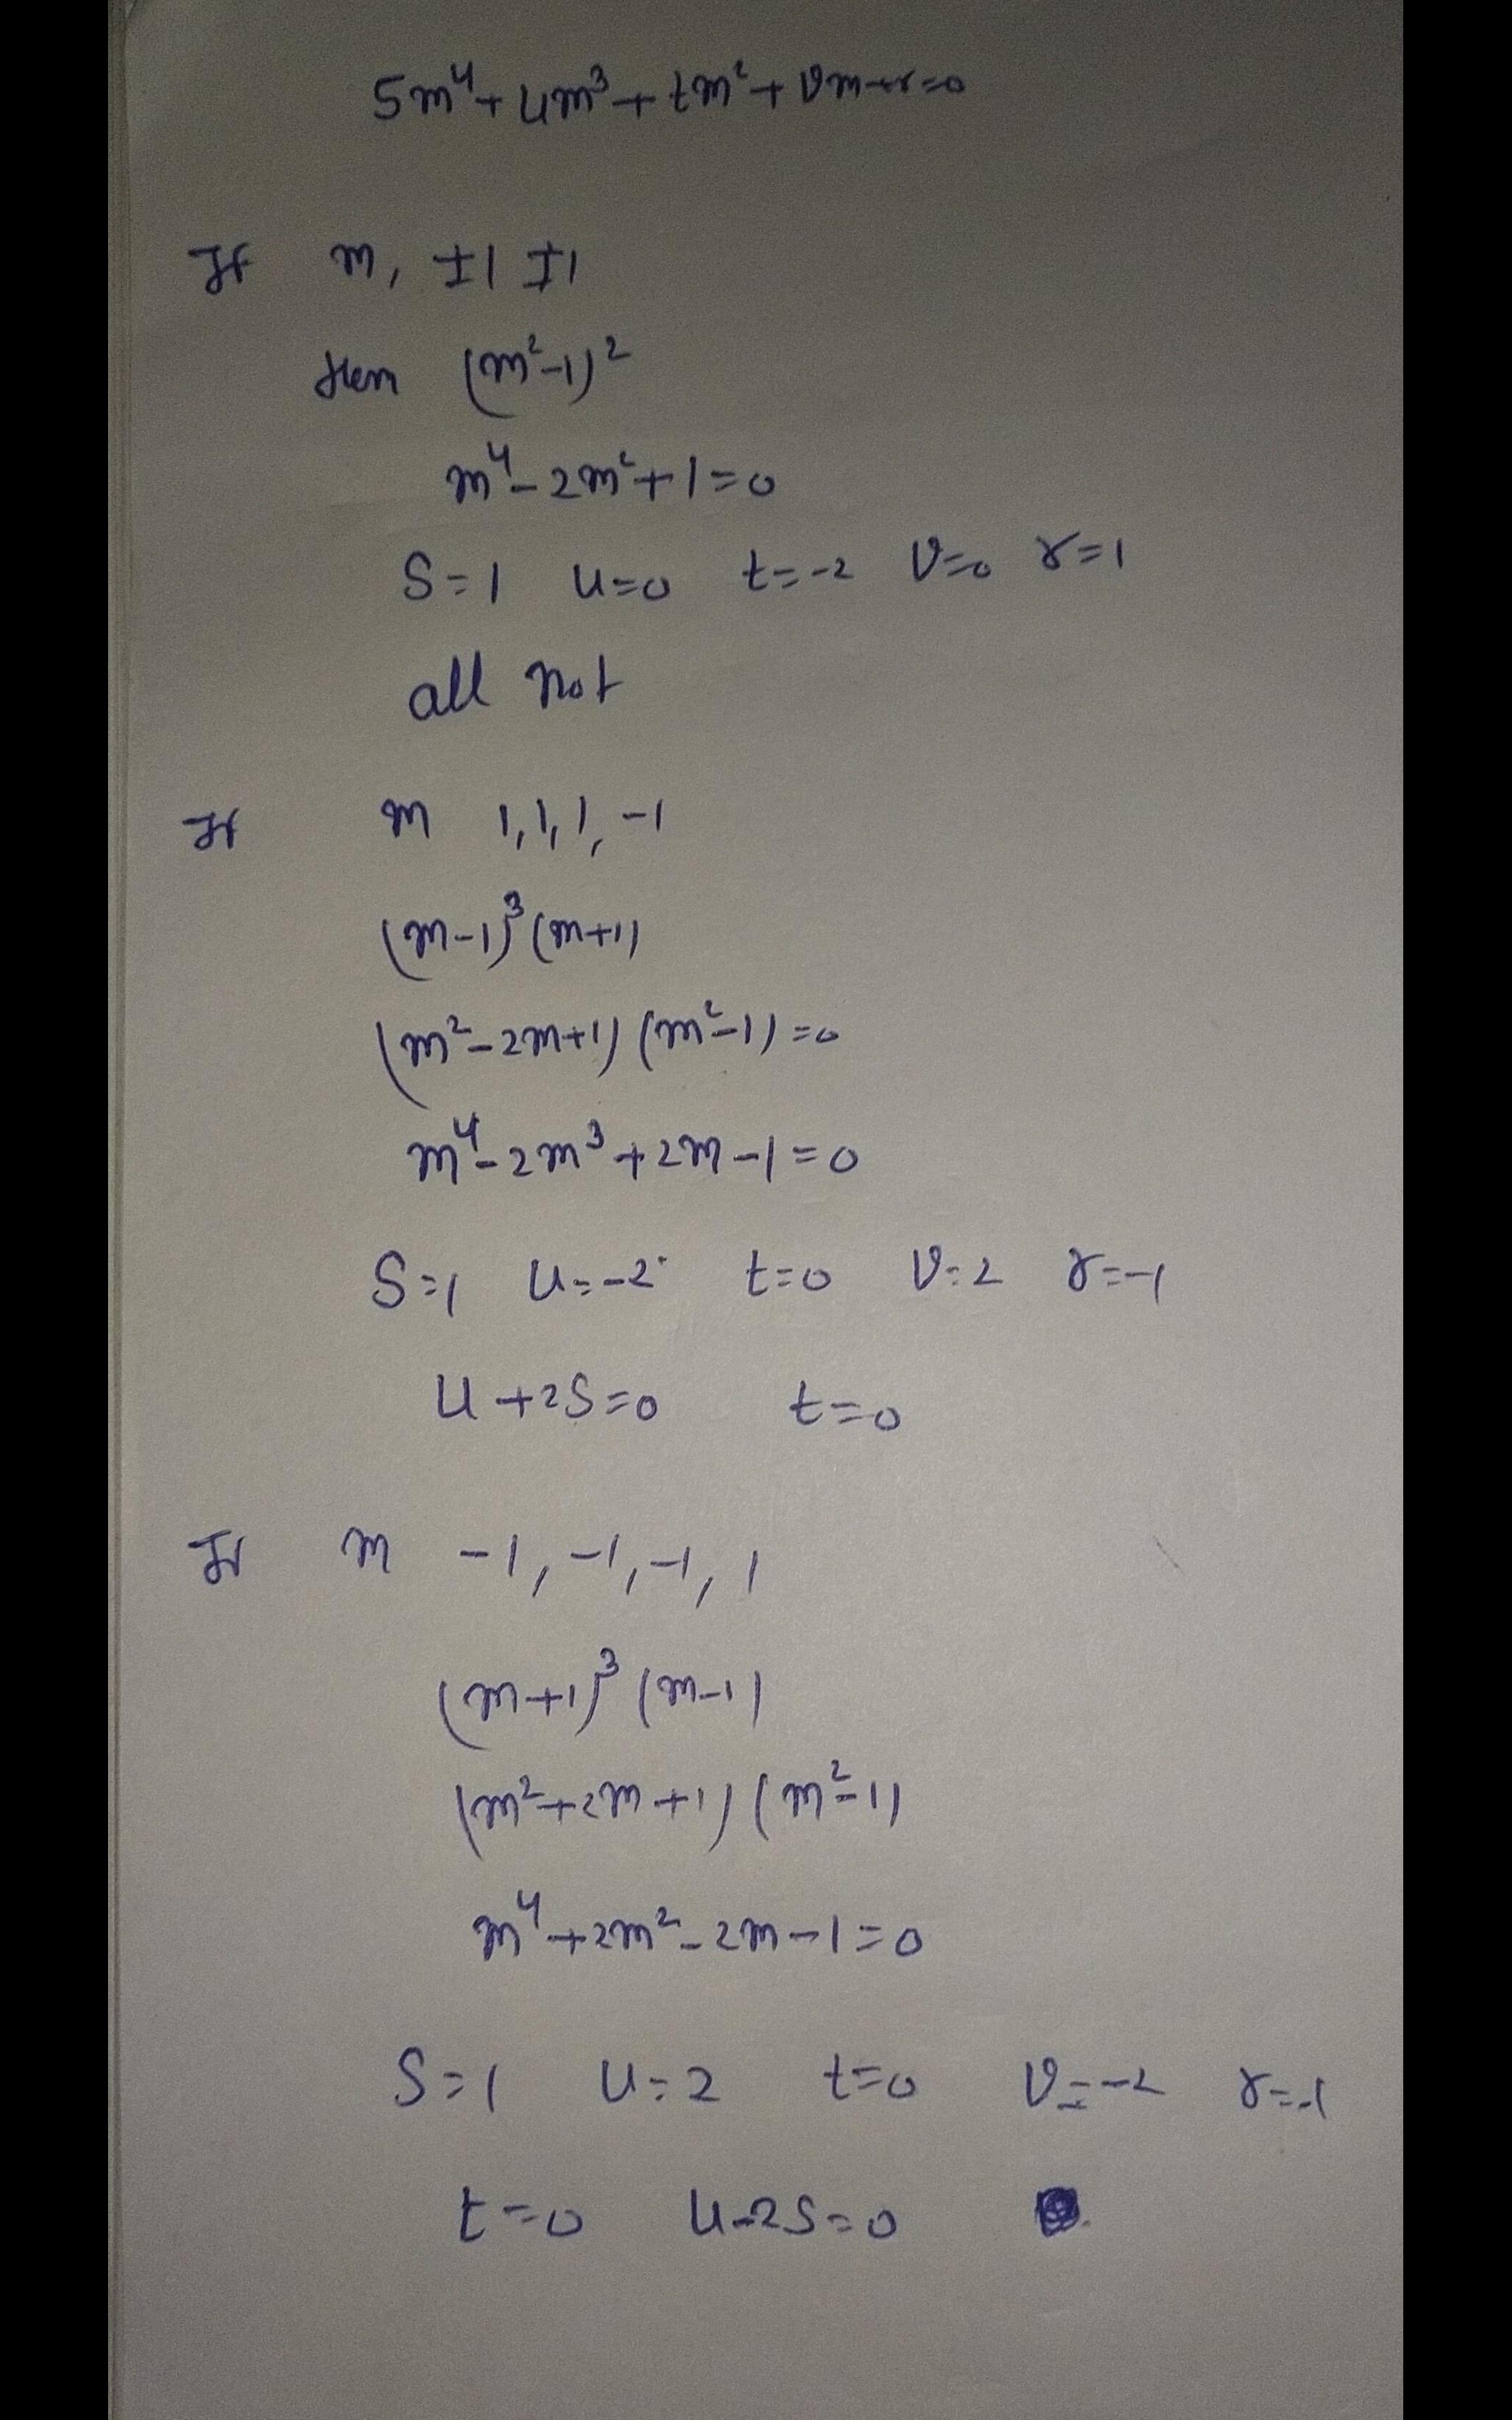 5m⁴+um³+tm²+vm+r=0
If m, ±1 ±1
then (m²-1)²
m⁴-2m²+1=0
S=1 u=0 t=-2 v=0 r=1
all not
If m 1,1,1,-1
(m-1)³(m+1)
(m²-2m+1)(m²-1)=0
m⁴-2m³+2m-1=0
S=1 u=-2 t=0 v=2 r=-1
u+2S=0 t=0
If m -1,-1,-1,1
(m+1)³(m-1)
(m²+2m+1)(m²-1)
m⁴+2m²-2m-1=0
S=1 u=2 t=0 v=-2 r=-1
t=0 u-2S=0